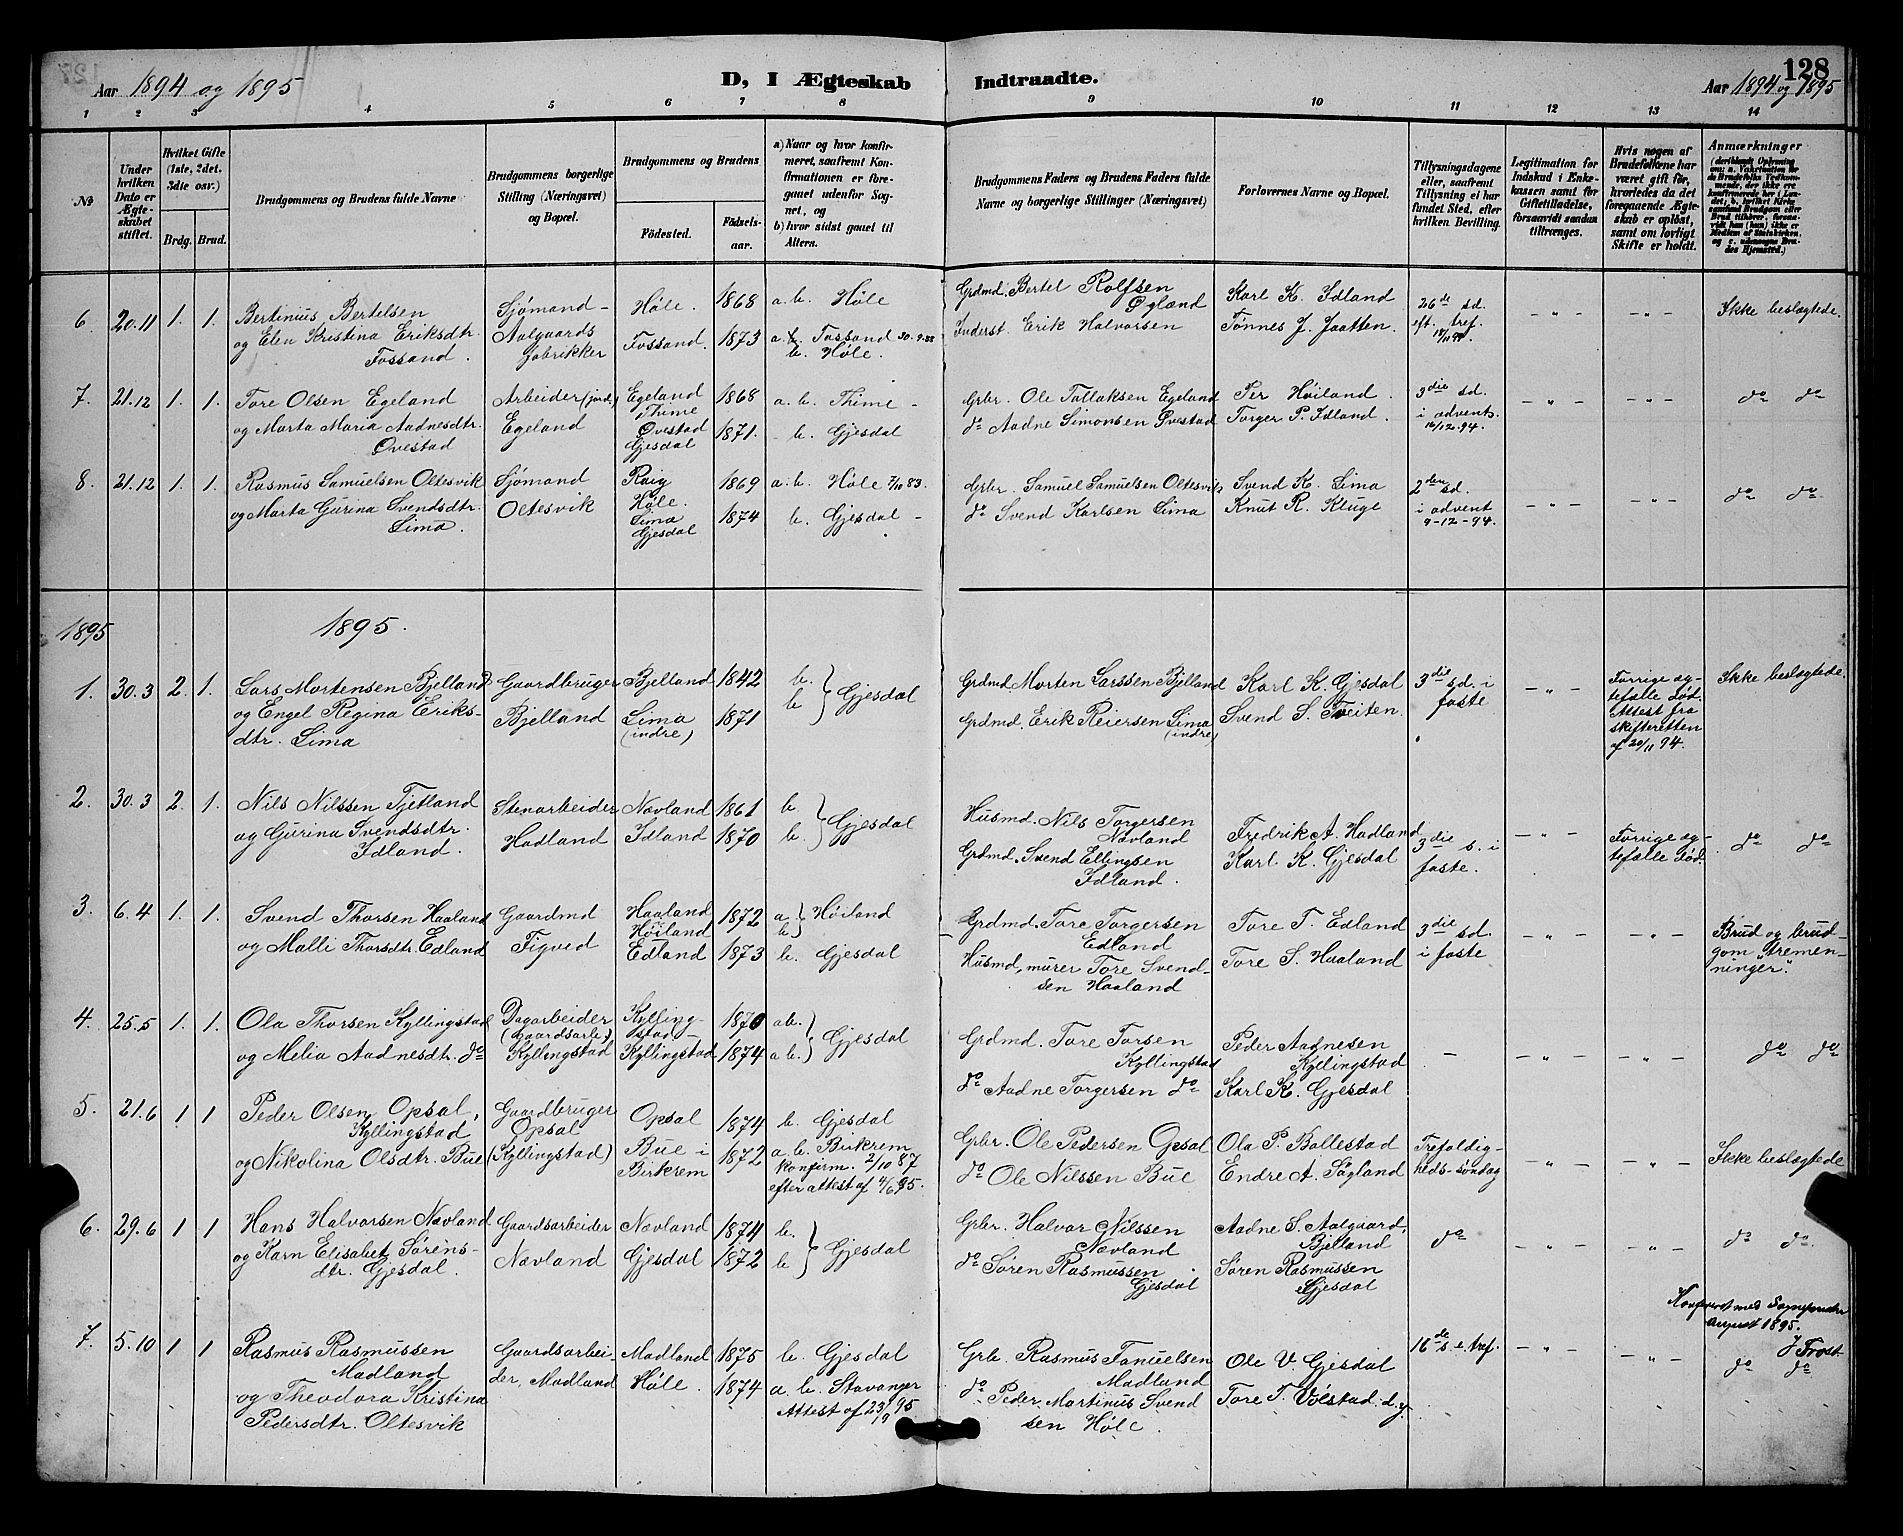 128
Aar 1894 og 1895
D, I Ægteskab Indtraadte.
Aar 1894 og 1895
1 2 3 4 5 6 7 8 9 10 11 12 13 14
№
Under hvilken Dato er Ægteskabet stiftet.
Hvilket Gifte (1ste, 2det. 3die osv.)
Brdg. Brud.
Brudgommens og Brudens fulde Navne
Brudgommens borgerlige Stilling (Næringsvei) og Bopæl.
Brudgommens og Brudens
Fødested.
Fødselsaar.
a) Naar og hvor konfirmeret, saafremt Konfirmationen er foregaaet udenfor Sognet, og
b) hvor sidst gaaet til Alters.
Brudgommens Faders og Brudens Faders fulde Navne og borgerlige Stillinger (Næringsvei)
Forlovernes Navne og Bopæl.
Tillysningsdagene eller, saafremt Tillysning ei har fundet Sted, efter hvilken Bevilling.
Legitimation for Indskud i Enkekassen samt for Giftetilladelse, forsaavidt saadan tiltrænges.
Hvis nogen af Brudefolkene har været gift før, hvorledes da det foregaaende Ægteskab er opløst, samt om lovligt Skifte er holdt.
Anmærkninger
6. 20.11 1. 1. Bertinius Bertelsen
og Elen Kristina Eriksdtr.
Fossand.
Sjømand -
Aalgaards
fabrikker
Høle. 1868 a. b. Høle
Fossand. 1873 a. Fossand 30.9.88
b. Høle.
Grdmd. Bertel Rolfsen
Øglænd
Inderst. Erik Halvorsen
Karl K. Idland
Tønnes J. Jaatten.
26de sd.
eft. tref.
18/11 94.
- " - - " - Ikke beslægtede.
7. 21.12 1. 1. Tore Olsen Egeland
og Marta Maria Aadnesdtr.
Øvestad
Arbeider (jord.)
Egeland
Egeland
Thime
Øvestad
Gjesdal
1868 a. b. Thime -
1871. - b. Gjesdal
Grbr. Ole Tollaksen Egeland
do Aadne Simonsen Øvestad
Per Høiland.
Torger P. Idland.
3die sd.
i advent.
16/12.94.
- " - - " - do do
8. 21.12 1. 1. Rasmus Samuelsen Oltesvik
og Marta Gurina Svendsdtr.
Lima.
Sjømand
Oltesvik
Høle.
Lima
Gjesdal
1869 a. b. Høle 7/10 83.
1874 b. Gjesdal -
Grbr. Samuel Samuelsen Oltesvik
do Svend Karlsen Lima
Svend K. Lima
Knut R. Kluge
2den sd.
i advent
9-12-94.
- " - - " - do do.
1895 1895.
1. 30.3 2. 1. Lars Mortensen Bjelland
og Engel Regina Eriks-
dtr. Lima
Gaardbruger
Bjelland
Bjelland 1842 b.
Lima 1871 b } Gjesdal
(indre)
Grdmd. Morten Larssen Bjelland
Grdmd. Erik Reiersen Lima
(indre)
Karl K. Gjesdal
Svend S. Tveiten.
3die sd. i
faste
- " -
Forrige æg-
tefælle død.
Attest fra
skifteretten
af 20/11 94.
Ikke beslægtede.
2. 30.3 2. 1. Nils Nilssen Tjetland
og Gurina Svendsdtr.
Idland.
Stenarbeider
Hadland
Nævland 1861 b.
Idland 1870 b. } Gjesdal
Husmd. Nils Torgersen
Nævland
Grdmd. Svend Ellingsen
Idland.
Fredrik A. Hadland
Karl K. Gjesdal
3die s. i
faste.
- " -
Forrige æg-
tefælle død.
do do
3. 6.4 1. 1. Svend Thorsen Haaland
og Malli Thorsdtr. Edland
Gaardmd
Figved
Haaland
Høiland
Edland
1872 a. b. } Høiland
1873 b. Gjesdal
Grdmd. Tore Torgersen
Edland
Husmd, murer Tore Svend-
sen Haaland
Tore T. Edland
Tore S. Haaland
3die sd.
i faste
- " - - " -
Brud og brud-
gom "tremen-
ninger".
4. 25.5 1. 1. Ola Thorsen Kyllingstad
og Melia Aadnesdtr. do
Dagarbeider
(Gaardsarb.)
Kyllingstad
Kylling-
stad -
Kyllingstad
1870 ab.
1874 a b. } Gjesdal
Grdmd. Tore Torsen
Kyllingstad
do Aadne Torgersen do
Peder Aadnesen
Kyllingstad
Karl K. Gjesdal
- - " - - " - do do
5. 21.6 1 1 Peder Olsen Opsal,
Kyllingstad
og Nikolina Olsdtr. Bue
Gaardbruger
Opsal
(Kyllingstad)
Opsal
Bue i
Birkrem
1874 b. Gjesdal
1872 a. b. Birkrem
konfirm. 2/10 87
efter attest af 4/6 95.
Grbr. Ole Pedersen Opsal
do Ole Nilssen Bue
Ola P. Ballestad
Endre A. Søgland
Trefoldig-
heds-søndag
- " - - " - Ikke beslægtede
6. 29.6 1 1 Hans Halvorsen Nævland
og Karn Elisabet Sørens-
dtr. Gjesdal.
Gaardsarbeider
Nævland
Nævland 1874 b.
Gjesdal 1872 b } Gjesdal
Grbr. Halvor Nilssen
Nævland
do Søren Rasmussen
Gjesdal
Aadne S. Aalgaard,
Bjelland
Søren Rasmussen
Gjesdal
do - " - - " - do do.
Konfereret med Sogneprestens
august 1895.
J Frost
7. 5.10 1 1 Rasmus Rasmussen
Madland
og Theodora Kristina
Pedersdtr. Oltesvik
Gaardsarbei-
der, Madland
Madland 1875 b. Gjesdal
Høle. 1874 a. b. Stavanger
Attest af 23/9 95
Grb. Rasmus Tanuelsen
Madland
do. Peder Martinus Svend
sen Høle.
Ole V. Gjesdal
Tore T. Vølstad d.y.
16de s. e. tref.
- " - - " - do do